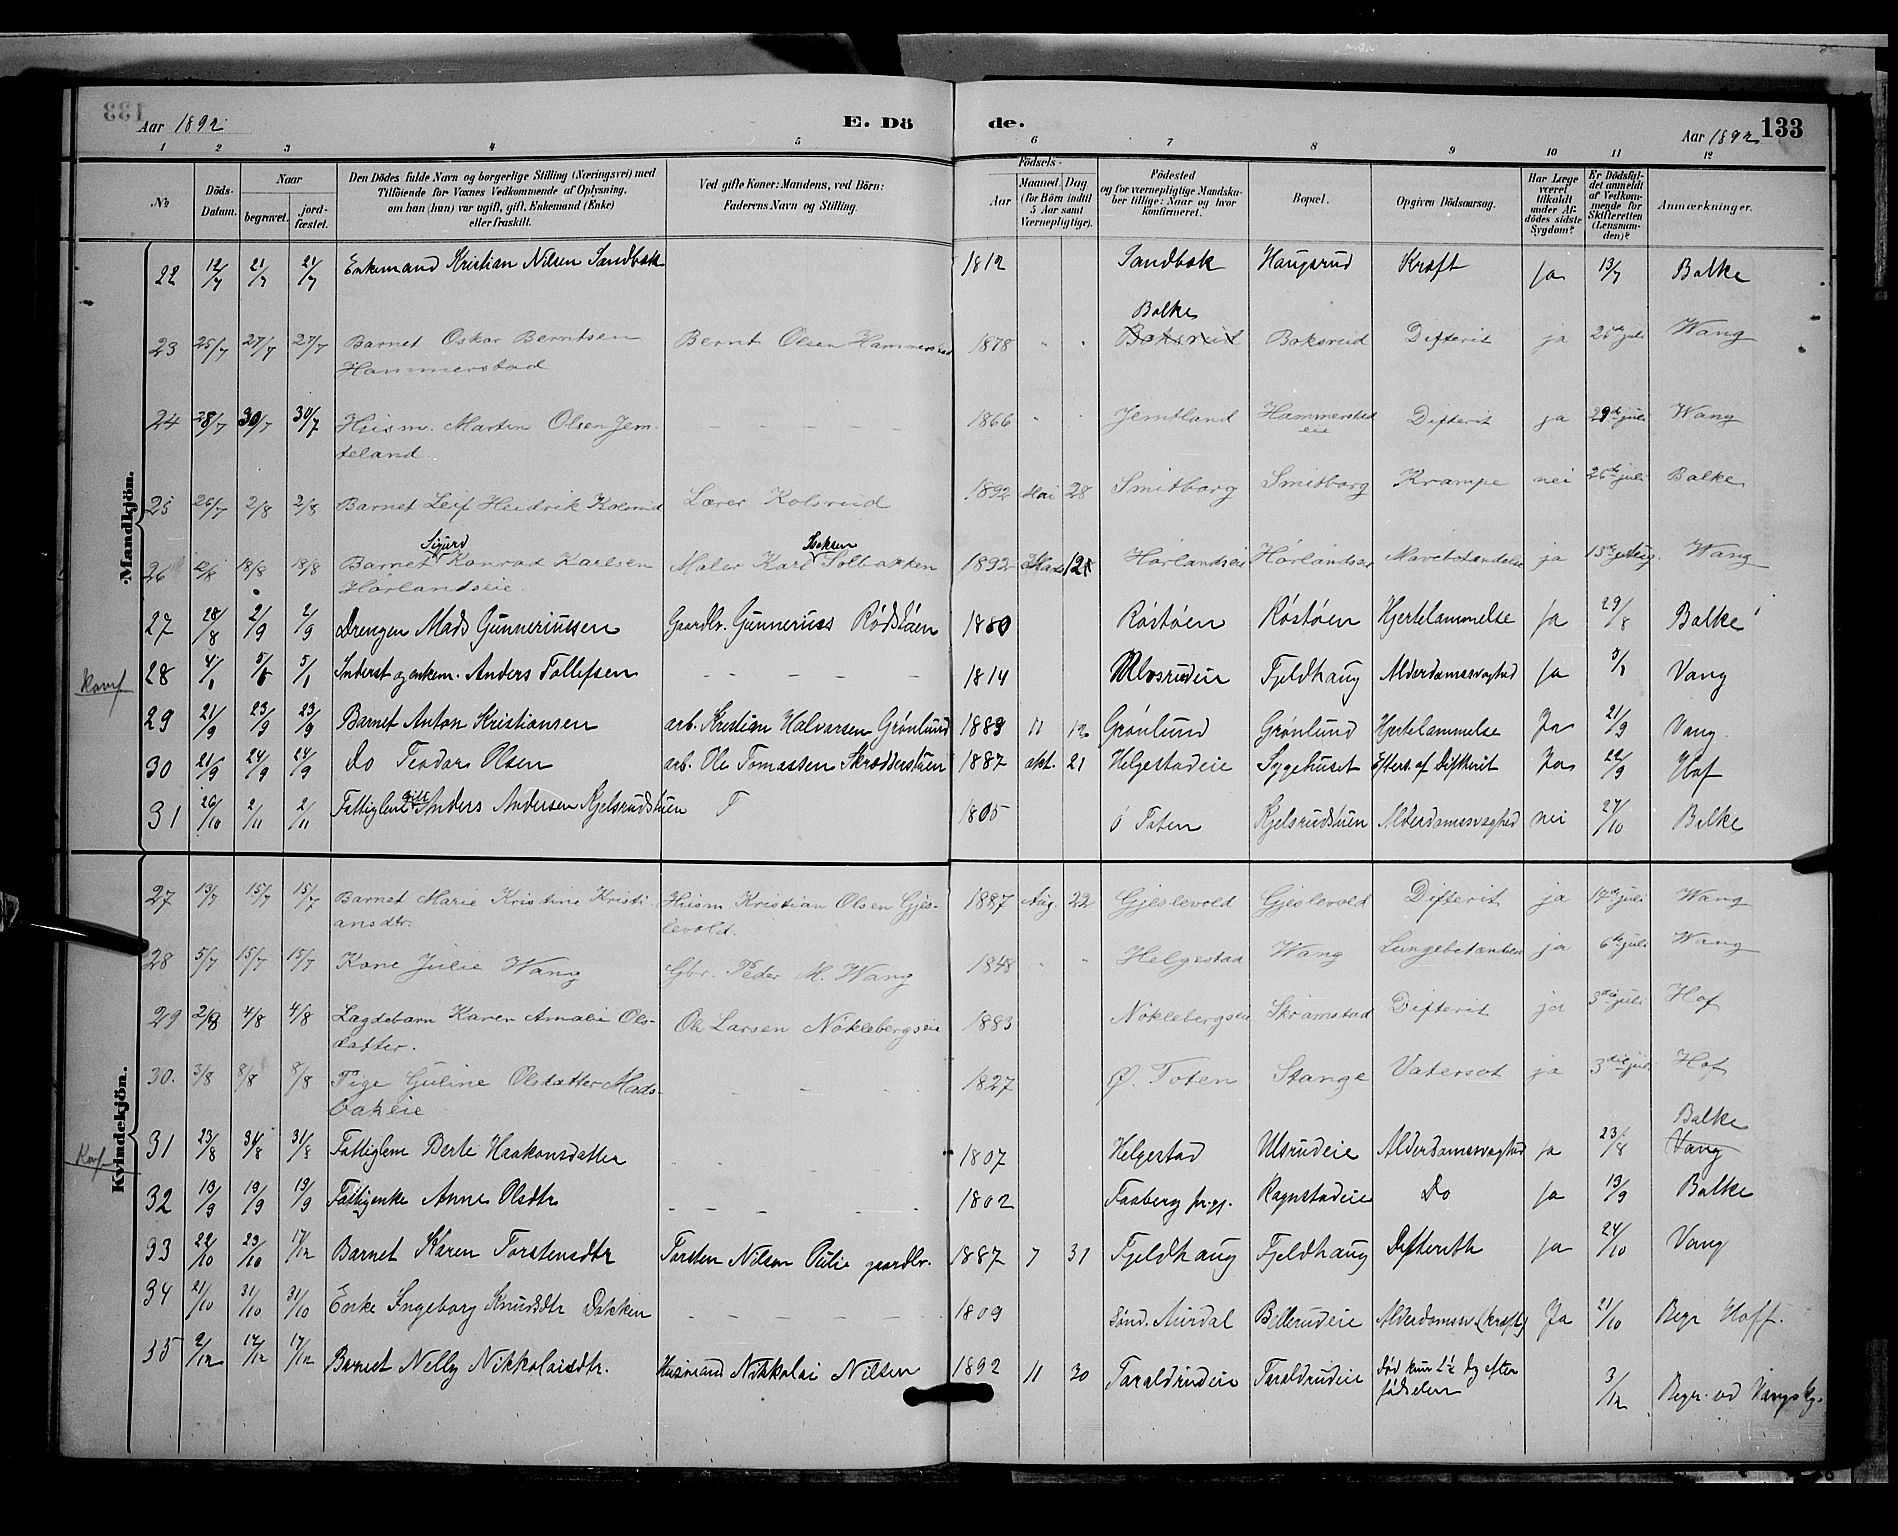 133
Aar 1892. E. Dö de. Aar 1892 133
1 2 3 4 5 6 7 8 9 10 11 12
№ Döds-Datum. Naar begravet. jord-fæstet. Den Dödes fulde Navn og borgerlige Stilling (Næringsvei) med Tilföiende for Voxnes Vedkommende af Oplysning, om han (hun) var ugift, gift, Enkemand (Enke) eller fraskilt. Ved gifte Koner: Mandens, ved Börn: Faderens Navn og Stilling. Födsels- Aar Maaned. Dag (for Börn indtil 5 Aar samt Værnepligtige). Födested og for værnepligtige Mandskaber tillige: Naar og hvor konfirmeret. Bopæl. Opgiven Dödsaarsag. Har Læge været tilkaldt under Afdödes sidste Sygdom? Er Dödsfaldet anmeldt af Vedkommende for Skifteretten (Lensmanden)? Anmærkninger.
Mandkjön.
22 12/7 21/7 21/7 Enkemand Kristian Nilsen Sandbak 1812 Sandbak Haugsrud Kræft Ja 13/7 Balke
Balke
23 25/7 27/7 27/7 Barnet Oskar Berntsen Bernt Olsen Hammerstad 1878 " " Boksrud Boksrud Difterit ja 25de juli Wang
Hammerstad
24 28/7 30/7 30/7 Husm. Martin Olsen Jem- – – – – – 1866 " " Jemtland Hammerstad Difterit ja 29de juli Wang
teland. eie
25 26/7 2/8 2/8 Barnet Leif Hendrik Kolsrud Lærer Kolsrud 1892 Mai 28 Smitborg Smitborg Krampe nei 26de juli Balke
Sigurd Isaksen
26 12/8 18/8 18/8 Barnet Konrad Karlsen Maler Karl Solbakken 1892 Marts Hörlandseie Hörlandseie Mavebetændelse ja Aug. Wang
Hörlandseie.
27 28/8 2/9 2/9 Drengen Mads Gunneriussen Gaardbr. Gunnerius Rödstöen 1880 Röstöen Röstöen Hjertelammelse Ja 29/8 Balke
Konf.
28 Inderst og enkem. Anders Tollefsen – – – – 1814 Ulvsrudeie Fjeldhaug Alderdomssvaghed Ja Vang
29 21/9 23/9 23/9 Barnet Anton Kristiansen arb. Kristian Halvorsen Grønlund 1889 11 12 Grønlund Grønlund Hjertelammelse Ja 21/9 Vang.
30 21/9 24/9 24/9 Do Teodor Olsen arb. Ole Tomassen Skrædderstuen 1887 okt. 21 Helgestadeie Sygehuset Efters. af Difterit Ja 22/9 Hof
31 26/10 2/11 2/11 Fattiglem gift Anders Andersen Kjelsrudstuen 1805 Ö Toten Kjelsrudstuen Alderdomssvaghed nei 27/10 Balke
Kvindekjön.
27 13/7 15/7 15/7 Barnet Marie Kristine Kristi- Husm Kristian Olsen Gjes- 1887 Aug. 22 Gjeslevold Gjeslevold Difterit ja 14de juli Wang
ansdtr. levold.
28 5/7 15/7 15/7 Kone Julie Wang Gbr. Peder M. Wang 1848 " " Helgestad Wang Lungebetændelse ja 6te juli Wang
29 2/8 4/8 4/8 Lægdebarn Karen Amalie Ols- Ole Larsen Nöklebergseie 1883 Nöklebergseie Skramstad Difterit ja 3die juli Hof
datter.
30. 3/8 8/8 8/8 Pige Guline Olsdatter Mads- – – – 1827 Ø. Toten Stange Vatersot ja 3die juli Hof
bakeie
Konf.
Balke
31 23/8 31/8 31/8 Fattiglem Berte Haakonsdatter 1807 Helgestad Ulsrudeie Alderdomssvaghed ja 23/8 Vang
32 13/9 19/9 19/9 Fattigenke Anne Olsdtr – – – – – 1802 Faaberg prgj. Rognstadeie Do ja 13/9 Balke
33 22/10 29/10 17/12 Barnet Karen Torstensdtr Torsten Nilsen Tulie gaardbr. 1887 7 31 Fjeldhaug Fjeldhaug Difterith ja 24/10 Vang
34 21/10 31/10 31/10 Enke Ingeborg Knudsdtr Dokken – – – – – 1809 Sönd. Aurdal Billerudeie Alderdomssv. (kræft) Ja 21/10 Begr Hoff.
35 2/12 17/12 17/12 Barnet Nelly Nikkolaisdtr. Husmand Nikkolai Nilsen 1892 11 30 Taraldrudeie Taraldrudeie Död kun 1½ Dg efter 3/12 Begr. ved Vangs kg.
födselen